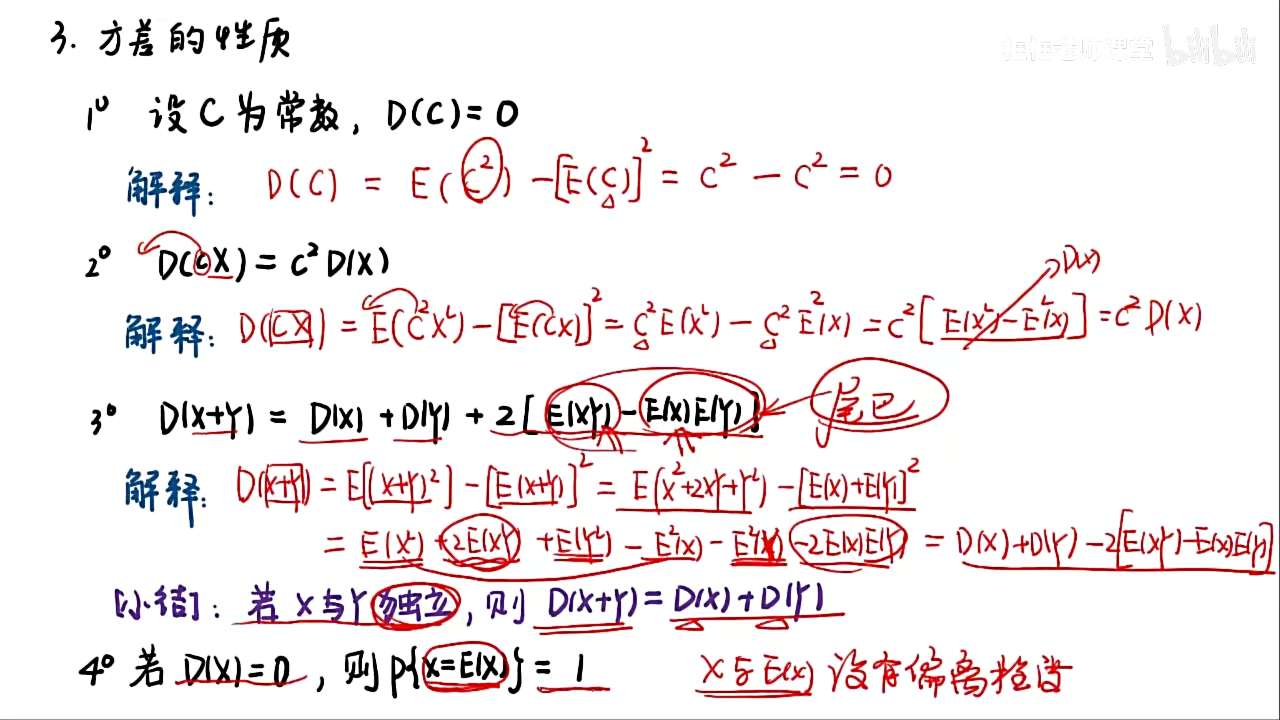 3. 方差的性质
1⁰ 设 C 为常数, D(C) = 0
解释: D(C) = E(C²) - [E(C)]² = C² - C² = 0
2⁰ D(CX) = C²D(X)
D(X)
解释: D(CX) = E(C²X²) - [E(CX)]² = C²E(X²) - C²E²(X) = C²[E(X²) - E²(X)] = C²D(X)
3⁰ D(X+Y) = D(X) + D(Y) + 2[E(XY) - E(X)E(Y)] 尾巴
解释: D(X+Y) = E[(X+Y)²] - [E(X+Y)]² = E(X²+2XY+Y²) - [E(X)+E(Y)]²
= E(X²) + 2E(XY) + E(Y²) - E²(X) - E²(Y) - 2E(X)E(Y) = D(X)+D(Y)-2[E(XY)-E(X)E(Y)]
小结: 若 X与Y 独立, 则 D(X+Y) = D(X) + D(Y)
4⁰ 若 D(X)=0, 则 P{X=E(X)} = 1 X与E(X) 没有偏离程度
课堂 bilibili